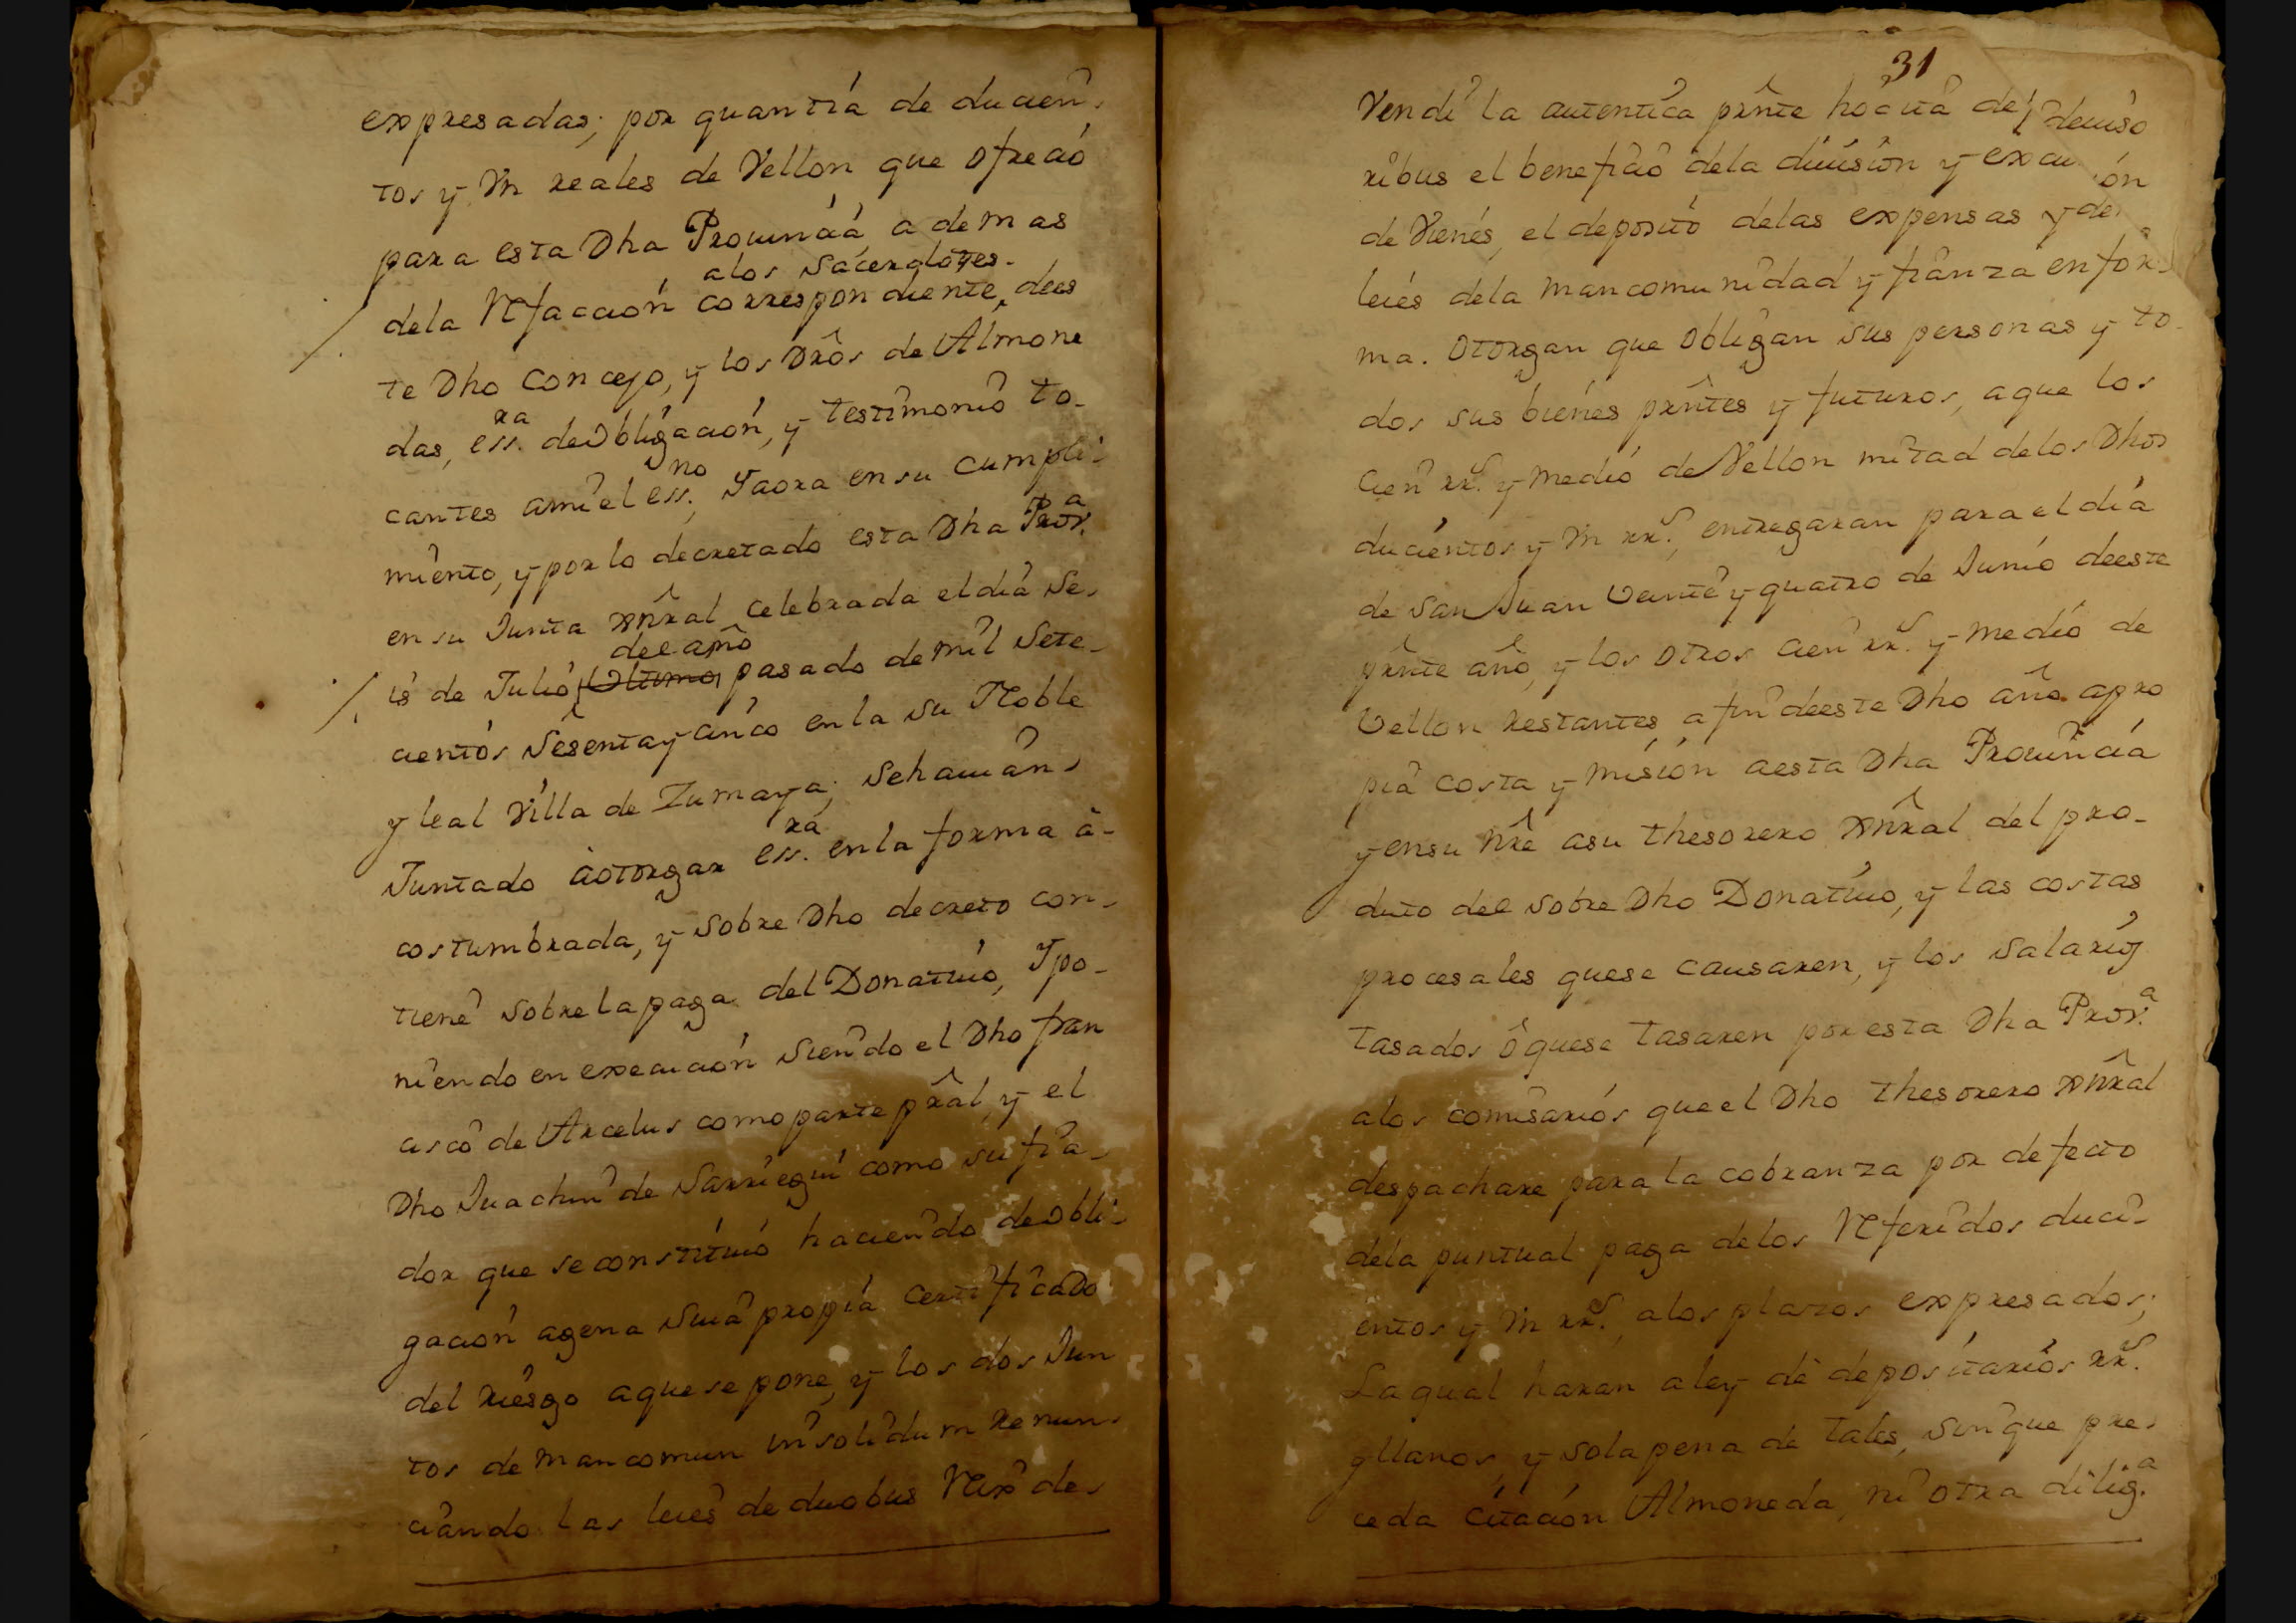 expresadas; por quantia de ducien-
tos y un reales de Vellon que ofreció
para esta Dha Prouincia, a demas
alos sacerdotes.
dela Refaccion correspondiente, dees
te Dho Concejo, y los Drôs de Almone
das, essra. deobligacion, y testimonio to-
cantes ami el essno, Yaora en su cumpli-
miento, y por lo decretado esta Dha Prova.
en su Junta Gñral celebrada el dia se-
del año
is de Julio Vltimo pasado de mil Sete-
cientos Sesenta y cinco en la su Noble
y leal Villa de Zumaya; Sehauian
Juntado âotorgar essra. en la forma â-
costumbrada, y Sobre Dho decreto con-
tiene Sobre la paga del Donatiuo, Ypo-
niendo en execucion Siendo el Dho fran
cisco de Arcelus como parte prâl, y el
Dho Juachin de Sarriegui como su fia-
dor que se constituió haciendo deobli-
gación agena Suia propia Certificado
del riesgo aque se pone, y los dos Jun
tos de mancomun insolidum renun-
ciando las leies de duobus Rex de-
31
Vendi la autentica prñte hôc ita de fideiuso
ribus el beneficio dela diuision y excu ión
de Vienes, el deposito delas expensas y de
leies dela mancomunidad y fianza en for-
ma. Otorgan que obligan sus personas y to-
dos sus bienes prñtes y futuros, aque los
Cien rrs. y medio de Vellon mitad delos Dhos
ducientos y un rrs., entregaran para el dia
de San Juan Veinte y quatro de Junio deeste
prñte año, y los otros cien rrs. y medio de
Vellon restantes, a fin deeste Dho año apro
pia costa y mision aesta Dha Prouincia
y ensu nrê asu thesorero Gñral del pro-
duto del sobre Dho Donatiuo, y las costas
procesales quese causaren, y los Salarios
tasados ôquese tasaren por esta Dha Prova.
alos comisarios que el Dho thesorero Gñral
despachare para la cobranza por defecto
dela puntual paga delos Referidos duci-
entos y un rrs., alos plazos expresados;
La qual haran a ley de depositarios rrs.
y llanos, y sola pena de tales, Sinque pre-
ceda Citacion Almoneda, ni otra diliga.